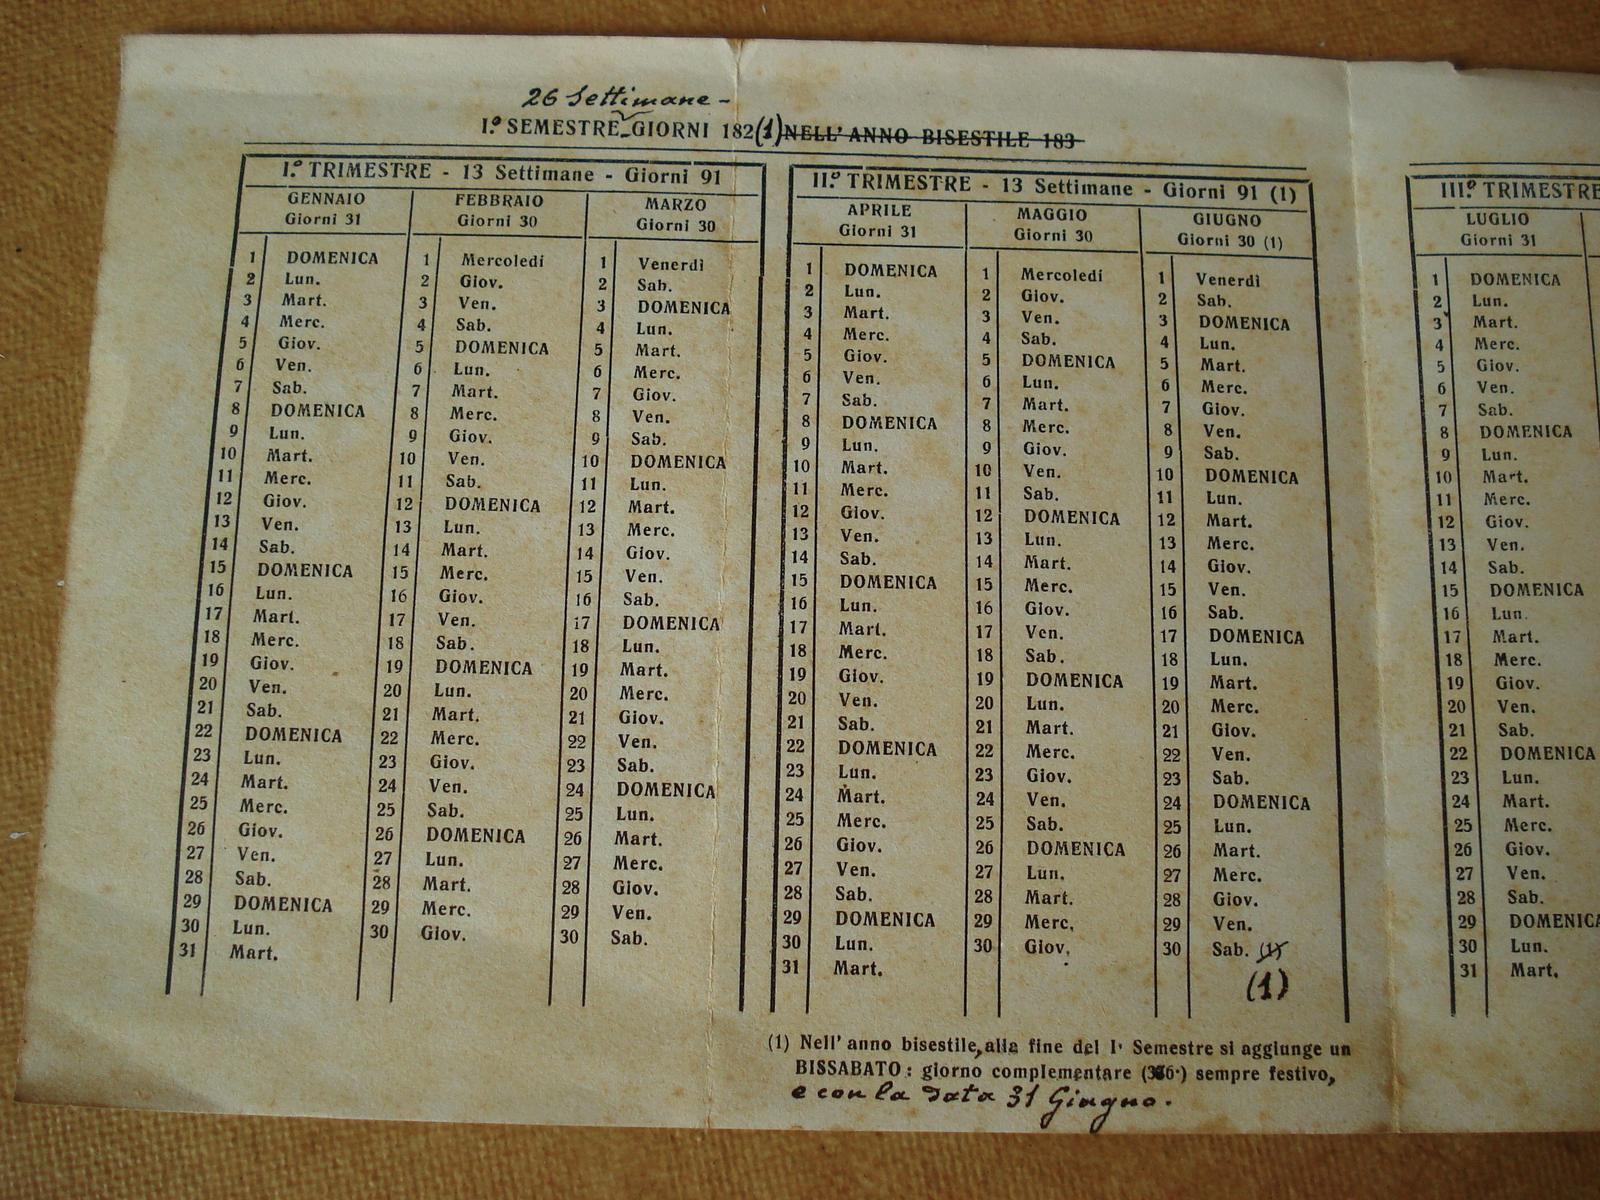 26 Settimane -
I.º SEMESTRE - GIORNI 182 (1) NELL' ANNO BISESTILE 183
I.º TRIMESTRE - 13 Settimane - Giorni 91 II.º TRIMESTRE - 13 Settimane - Giorni 91 (1) III.º TRIMESTRE
GENNAIO FEBBRAIO MARZO APRILE MAGGIO GIUGNO LUGLIO
Giorni 31 Giorni 30 Giorni 30 Giorni 31 Giorni 30 Giorni 30 (1) Giorni 31
1 DOMENICA 1 Mercoledì 1 Venerdì 1 DOMENICA 1 Mercoledì 1 Venerdì 1 DOMENICA
2 Lun. 2 Giov. 2 Sab. 2 Lun. 2 Giov. 2 Sab. 2 Lun.
3 Mart. 3 Ven. 3 DOMENICA 3 Mart. 3 Ven. 3 DOMENICA 3 Mart.
4 Merc. 4 Sab. 4 Lun. 4 Merc. 4 Sab. 4 Lun. 4 Merc.
5 Giov. 5 DOMENICA 5 Mart. 5 Giov. 5 DOMENICA 5 Mart. 5 Giov.
6 Ven. 6 Lun. 6 Merc. 6 Ven. 6 Lun. 6 Merc. 6 Ven.
7 Sab. 7 Mart. 7 Giov. 7 Sab. 7 Mart. 7 Giov. 7 Sab.
8 DOMENICA 8 Merc. 8 Ven. 8 DOMENICA 8 Merc. 8 Ven. 8 DOMENICA
9 Lun. 9 Giov. 9 Sab. 9 Lun. 9 Giov. 9 Sab. 9 Lun.
10 Mart. 10 Ven. 10 DOMENICA 10 Mart. 10 Ven. 10 DOMENICA 10 Mart.
11 Merc. 11 Sab. 11 Lun. 11 Merc. 11 Sab. 11 Lun. 11 Merc.
12 Giov. 12 DOMENICA 12 Mart. 12 Giov. 12 DOMENICA 12 Mart. 12 Giov.
13 Ven. 13 Lun. 13 Merc. 13 Ven. 13 Lun. 13 Merc. 13 Ven.
14 Sab. 14 Mart. 14 Giov. 14 Sab. 14 Mart. 14 Giov. 14 Sab.
15 DOMENICA 15 Merc. 15 Ven. 15 DOMENICA 15 Merc. 15 Ven. 15 DOMENICA
16 Lun. 16 Giov. 16 Sab. 16 Lun. 16 Giov. 16 Sab. 16 Lun.
17 Mart. 17 Ven. 17 DOMENICA 17 Mart. 17 Ven. 17 DOMENICA 17 Mart.
18 Merc. 18 Sab. 18 Lun. 18 Merc. 18 Sab. 18 Lun. 18 Merc.
19 Giov. 19 DOMENICA 19 Mart. 19 Giov. 19 DOMENICA 19 Mart. 19 Giov.
20 Ven. 20 Lun. 20 Merc. 20 Ven. 20 Lun. 20 Merc. 20 Ven.
21 Sab. 21 Mart. 21 Giov. 21 Sab. 21 Mart. 21 Giov. 21 Sab.
22 DOMENICA 22 Merc. 22 Ven. 22 DOMENICA 22 Merc. 22 Ven. 22 DOMENICA
23 Lun. 23 Giov. 23 Sab. 23 Lun. 23 Giov. 23 Sab. 23 Lun.
24 Mart. 24 Ven. 24 DOMENICA 24 Mart. 24 Ven. 24 DOMENICA 24 Mart.
25 Merc. 25 Sab. 25 Lun. 25 Merc. 25 Sab. 25 Lun. 25 Merc.
26 Giov. 26 DOMENICA 26 Mart. 26 Giov. 26 DOMENICA 26 Mart. 26 Giov.
27 Ven. 27 Lun. 27 Merc. 27 Ven. 27 Lun. 27 Merc. 27 Ven.
28 Sab. 28 Mart. 28 Giov. 28 Sab. 28 Mart. 28 Giov. 28 Sab.
29 DOMENICA 29 Merc. 29 Ven. 29 DOMENICA 29 Merc. 29 Ven. 29 DOMENICA
30 Lun. 30 Giov. 30 Sab. 30 Lun. 30 Giov. 30 Sab. (1) 30 Lun.
31 Mart. 31 Mart. (1) 31 Mart.
(1) Nell' anno bisestile, alla fine del I° Semestre si aggiunge un
BISSABATO: giorno complementare (366°) sempre festivo,
e con la data 31 Giugno.